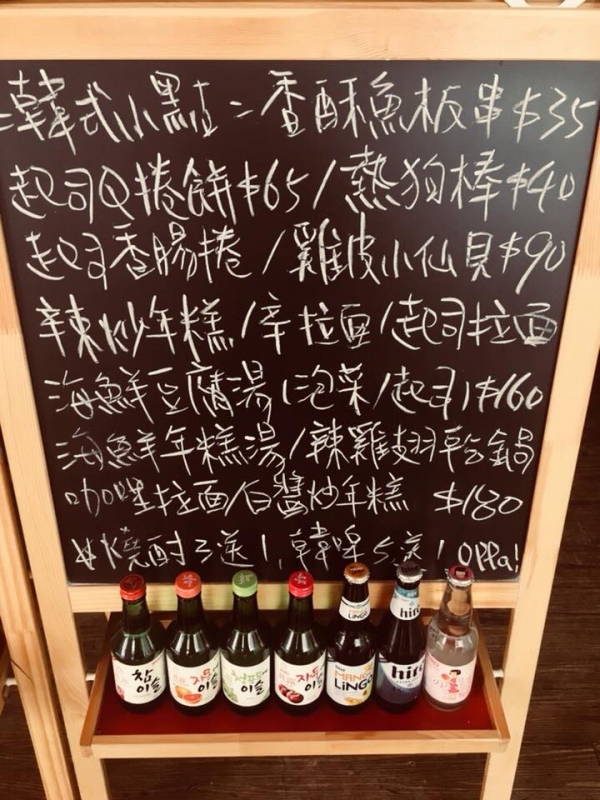 =韓式小點=香酥魚板串$35
起司Q捲餅$65/熱狗棒$40
起司香腸捲/雞皮小仙貝$90
辣炒年糕/辛拉面/起司拉面
海鮮豆腐湯(泡菜/起司)$160
海鮮年糕湯/辣雞翅乾鍋
咖哩拉面/白醬炒年糕 $180
燒酎3送1,韓啤5送1 OPPa!
참이슬
자몽에이슬
청포도에이슬
자두에이슬
MANGO LiNGO
hite